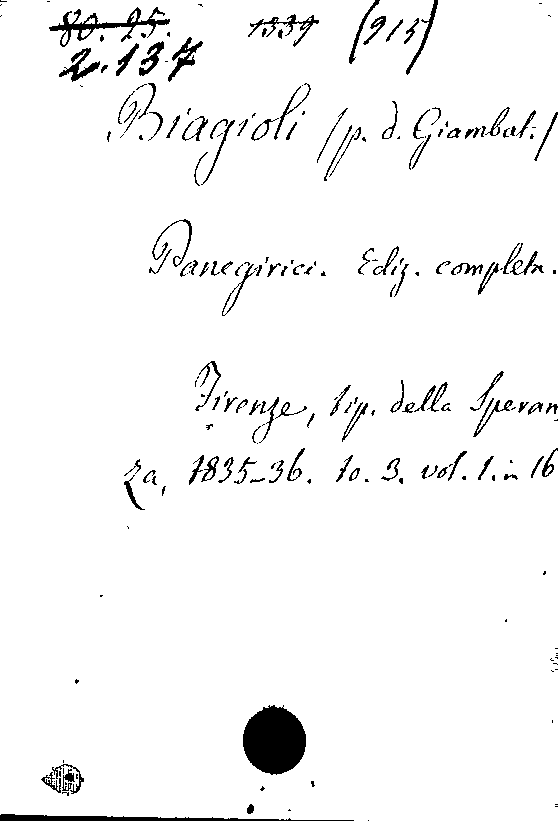 80. 25. 1339 (915)
2.137
Biagioli /p. d. Giambat./
Panegirici. Ediz. completa.
Firenze, tip. della Speran
za, 1835-36. to. 3. vol. 1. in 16